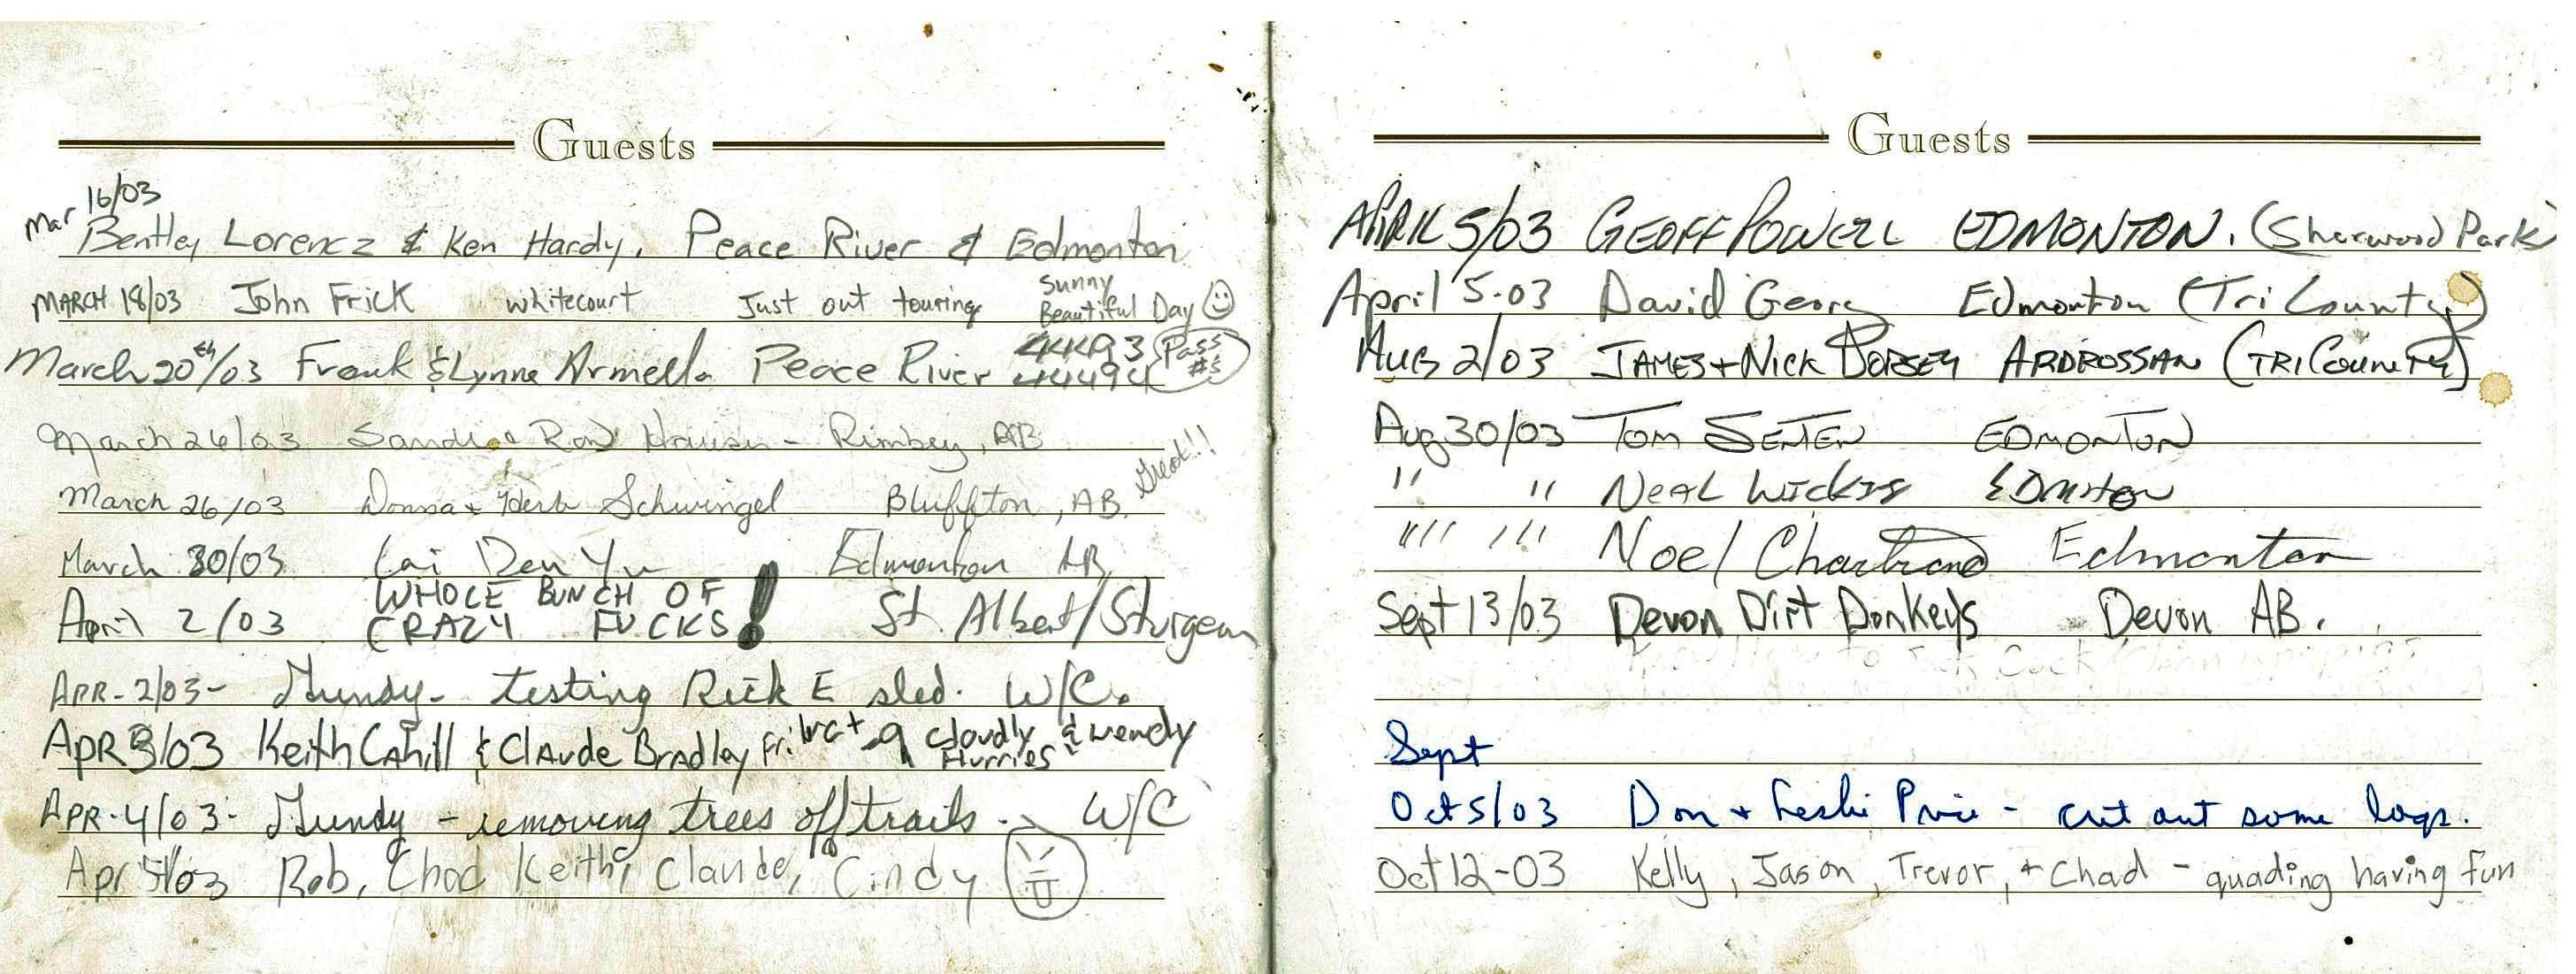 Guests
Mar 16/03
Bentley Lorencz & Ken Hardy, Peace River & Edmonton
MARCH 18/03 John Frick Whitecourt Just out touring Sunny
Beautiful Day
March 20th/03 Frank & Lynne Armella Peace River 44493 Pass
44494 #s
March 26/03 Sandi & Ron - Rimbey, AB
March 26/03 Donna & Herb Schwingel Bluffton, AB. Great!!
March 30/03 Edmonton AB
April 2/03 WHOLE BUNCH OF
CRAZY FUCKS! St. Albert/Sturgeon
APR-2/03- testing Rick E sled. W/C.
APR 3/03 Keith Cahill & Claude Bradley Fri. -9 cloudly & wendy
flurries
APR-4/03- - removing trees off trails - W/C
Apr 5/03 Rob, Chad Keith, Claude, Cindy
Guests
APRIL 5/03 GEOFF POWELL EDMONTON. (Sherwood Park)
April 5-03 David Georg Edmonton (Tri County)
Aug 2/03 JAMES + NICK DORSEY ARDROSSAN (TRI COUNTY)
Aug 30/03 TOM EDMONTON
" " NEAL EDMONTON
"" "" Noel Chartrand Edmonton
Sept 13/03 Devon Dirt Donkeys Devon AB.
Sept
Oct 5/03 Don + Leslie Price - cut out some logs.
Oct 12-03 Kelly, Jason, Trevor, + Chad - quading having fun